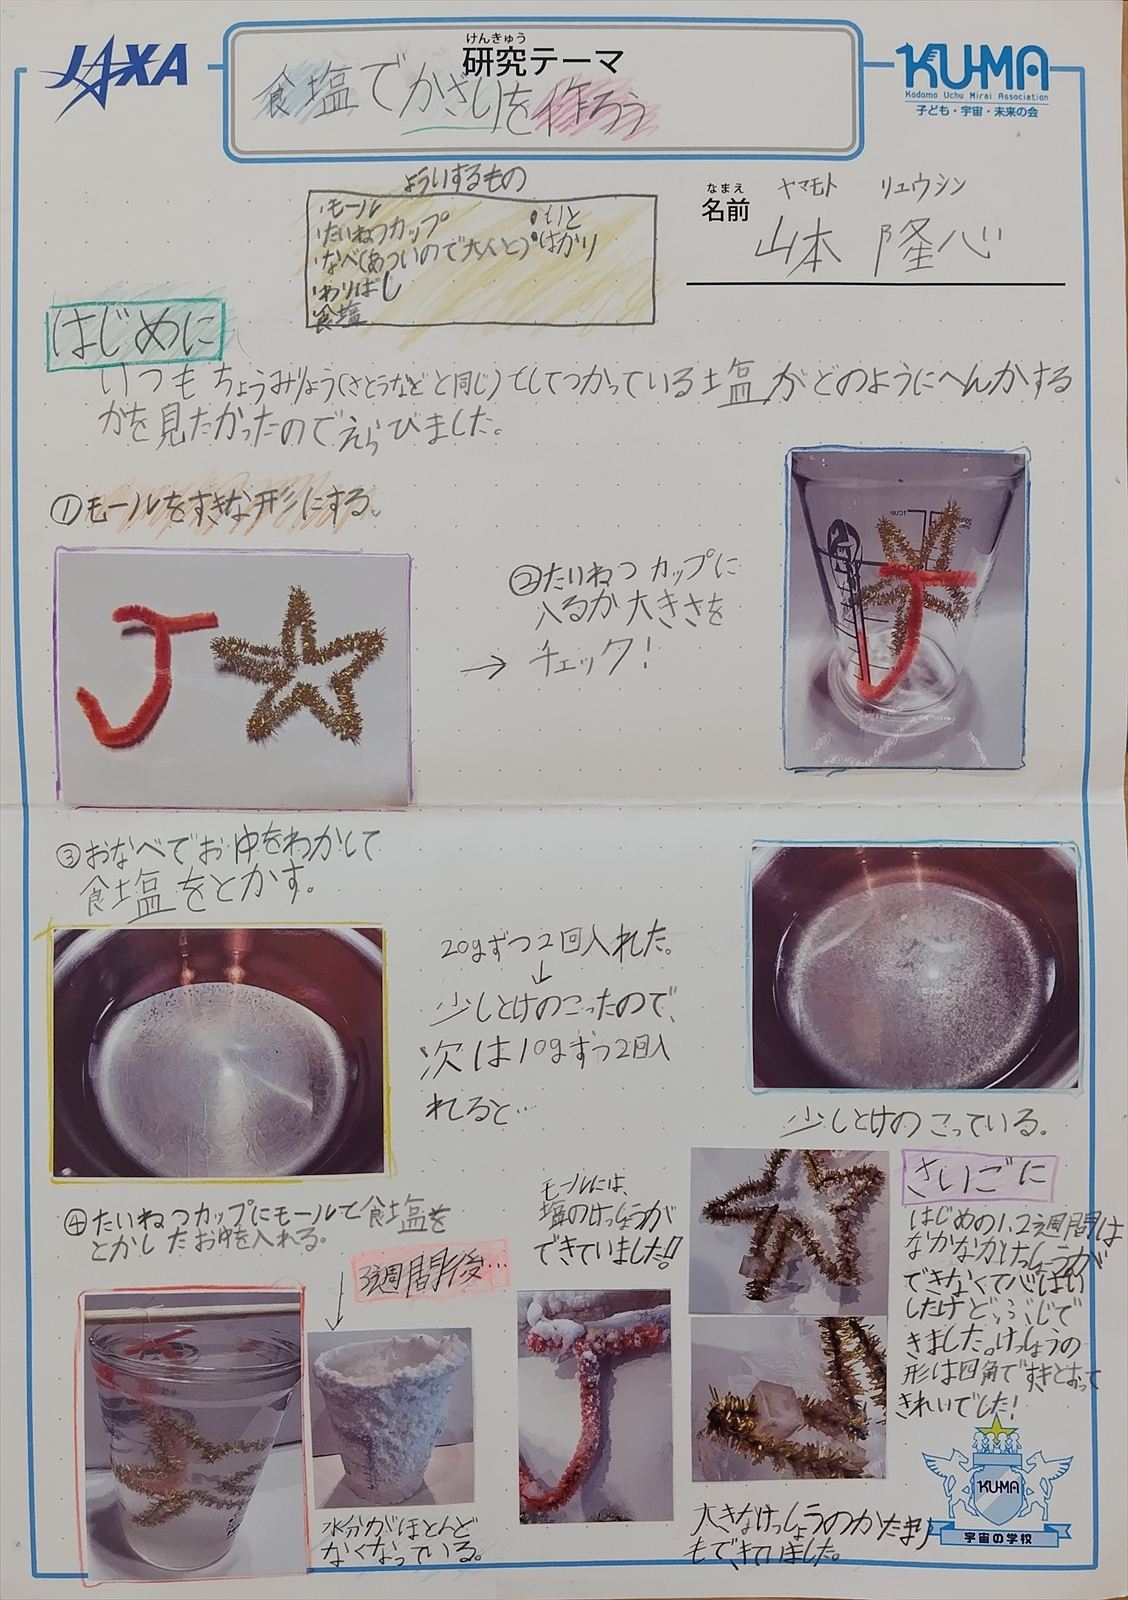 JAXA
けんきゅう
研究テーマ
食塩でかざりを作ろう
KU-MA
Kodomo Uchu Mirai Association
子ども・宇宙・未来の会
よういするもの
・モール
・たいねつカップ
・なべ(あついので大人と)
・わりばし
・食塩
・いと
・はかり
なまえ
名前
ヤマモト リュウシン
山本 隆心
はじめに
いつもちょうみりょう(さとうなどと同じ)としてつかっている塩がどのようにへんかする
かを見たかったのでえらびました。
①モールをすきな形にする。
②たいねつカップに
入るか大きさを
→ チェック!
③おなべでお湯をわかして
食塩をとかす。
20gずつ2回入れた。
↓
少しとけのこったので、
次は10gずつ2回入
れると…
少しとけのこっている。
④たいねつカップにモールと食塩を
とかしたお湯を入れる。
3週間後…
水分がほとんど
なくなっている。
モールには、
塩のけっしょうが
できていました!!
大きなけっしょうのかたまり
もできていました。
さいごに
はじめの1、2週間は
なかなかけっしょうが
できなくて心ぱい
したけど、ぶじで
きました。けっしょうの
形は四角ですきとおって
きれいでした!
KUMA
宇宙の学校